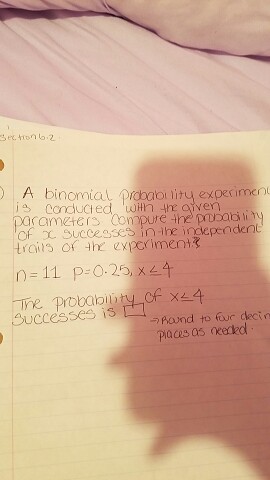 Section 6.2
) A binomial probability experimen
is conducted with the given
parameters compute the probability
of x successes in the independent
trails of the experiment?
n=11 p=0.25, x≤4
The probability of x≤4
successes is
→Round to four decim
places as needed.